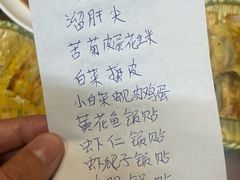 溜肝尖
苦菊皮蛋花生米
白菜 皮
小白菜蚬肉鸡蛋
黄花鱼锅贴
虾仁锅贴
虾爬子锅贴